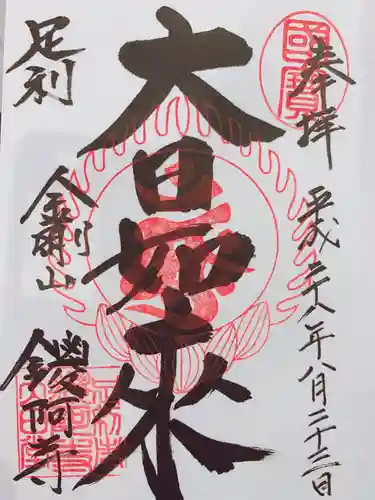 奉拝
國寶
平成二十八年八月二十三日
大日如來
足利
金剛山
鑁阿寺